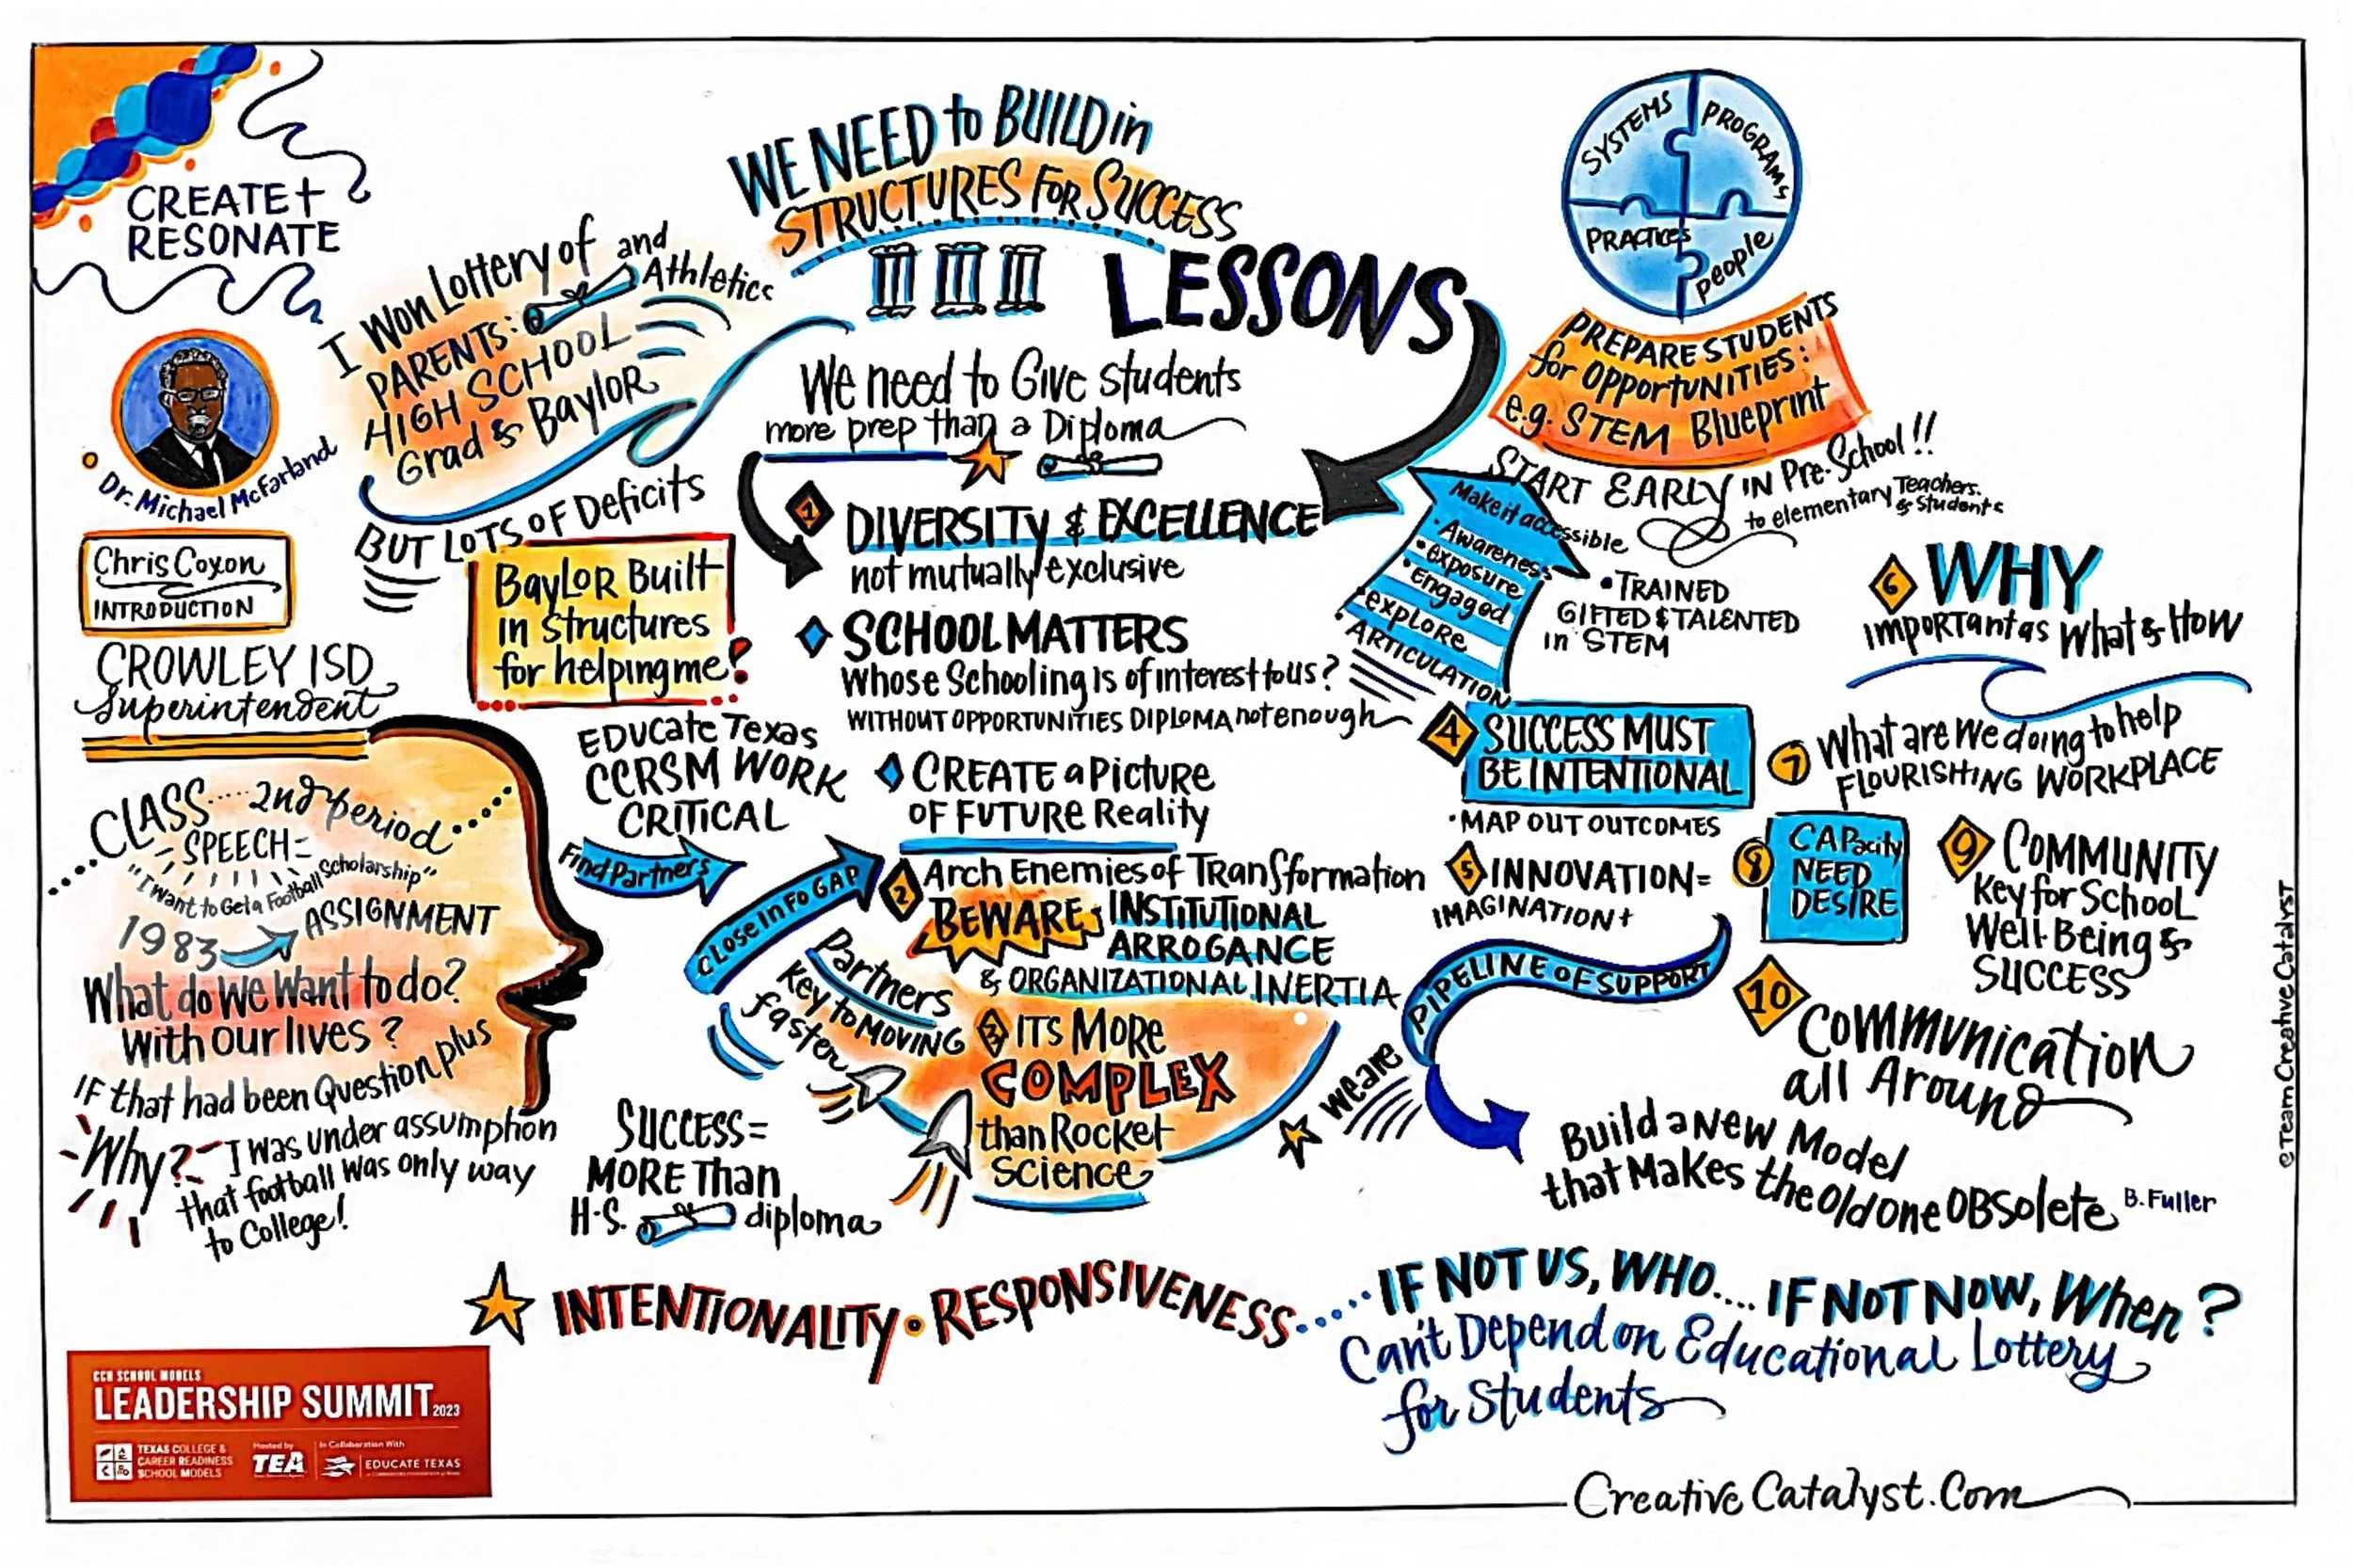 CREATE +
RESONATE
Dr. Michael McFarland
Chris Coxon
INTRODUCTION
CROWLEY ISD
Superintendent
CLASS.... 2nd period
SPEECH =
"I want to Get a Football Scholarship"
1983 ASSIGNMENT
What do we want to do?
With our lives?
IF that had been Question plus
Why? - I was under assumption
that football was only way
to College!
I Won Lottery of
PARENTS: and Athletics
HIGH SCHOOL
Grad & Baylor
BUT LOTS OF Deficits
BayLOR Built
in structures
for helping me!
EDUCate Texas
CCRSM WORK
CRITICAL
Find Partners
CLose InFo GAP
Partners
Key To MOVING
faster
SUCCESS =
MORE Than
H.S. diploma
WE NEED to BUILD in
STRUCTURES FOR SUCCESS
LESSONS
We need to Give students
more prep than a Diploma
1 DIVERSITY & EXCELLENCE
not mutually exclusive
SCHOOL MATTERS
Whose Schooling Is of interest to us?
WITHOUT OPPORTUNITIES DIPLOMA not enough
CREATE a Picture
OF FUTURE Reality
2 Arch Enemies of Transformation
BEWARE: INSTITUTIONAL
ARROGANCE
& ORGANIZATIONAL INERTIA
3 ITS MORE
COMPLEX
than Rocket
Science
SYSTEMS
PROGRAMS
PRACTICES
people
PREPARE STUDENTS
for OPPORTUNITIES:
e.g. STEM Blueprint
START EARLY IN Pre-School!!
to elementary Teachers
& Students
Make it accessible
• Awareness
• exposure
• Engaged
• explore
• ARTICULATION
• TRAINED
GIFTED & TALENTED
in STEM
4 SUCCESS MUST
BE INTENTIONAL
• MAP OUT OUTCOMES
5 INNOVATION =
IMAGINATION +
We are
PIPELINE OF SUPPORT
6 WHY
IMPORTANT as What & How
7 What are We doing to help
FLOURISHING WORKPLACE
8 CAPacity
NEED
DESIRE
9 COMMUNITY
Key for School
Well-Being &
SUCCESS
10 Communication
all Around
Build a New Model
that Makes the Old one OBSolete B. Fuller
INTENTIONALITY • RESPONSIVENESS..... IF NOT US, WHO.... IF NOT NOW, When?
Can't Depend on Educational Lottery
for Students
CCR SCHOOL MODELS
LEADERSHIP SUMMIT 2023
TEXAS COLLEGE &
CAREER READINESS
SCHOOL MODELS
Hosted by
TEA
In Collaboration With
EDUCATE TEXAS
CreativeCatalyst.Com
©TeamCreativeCatalyst